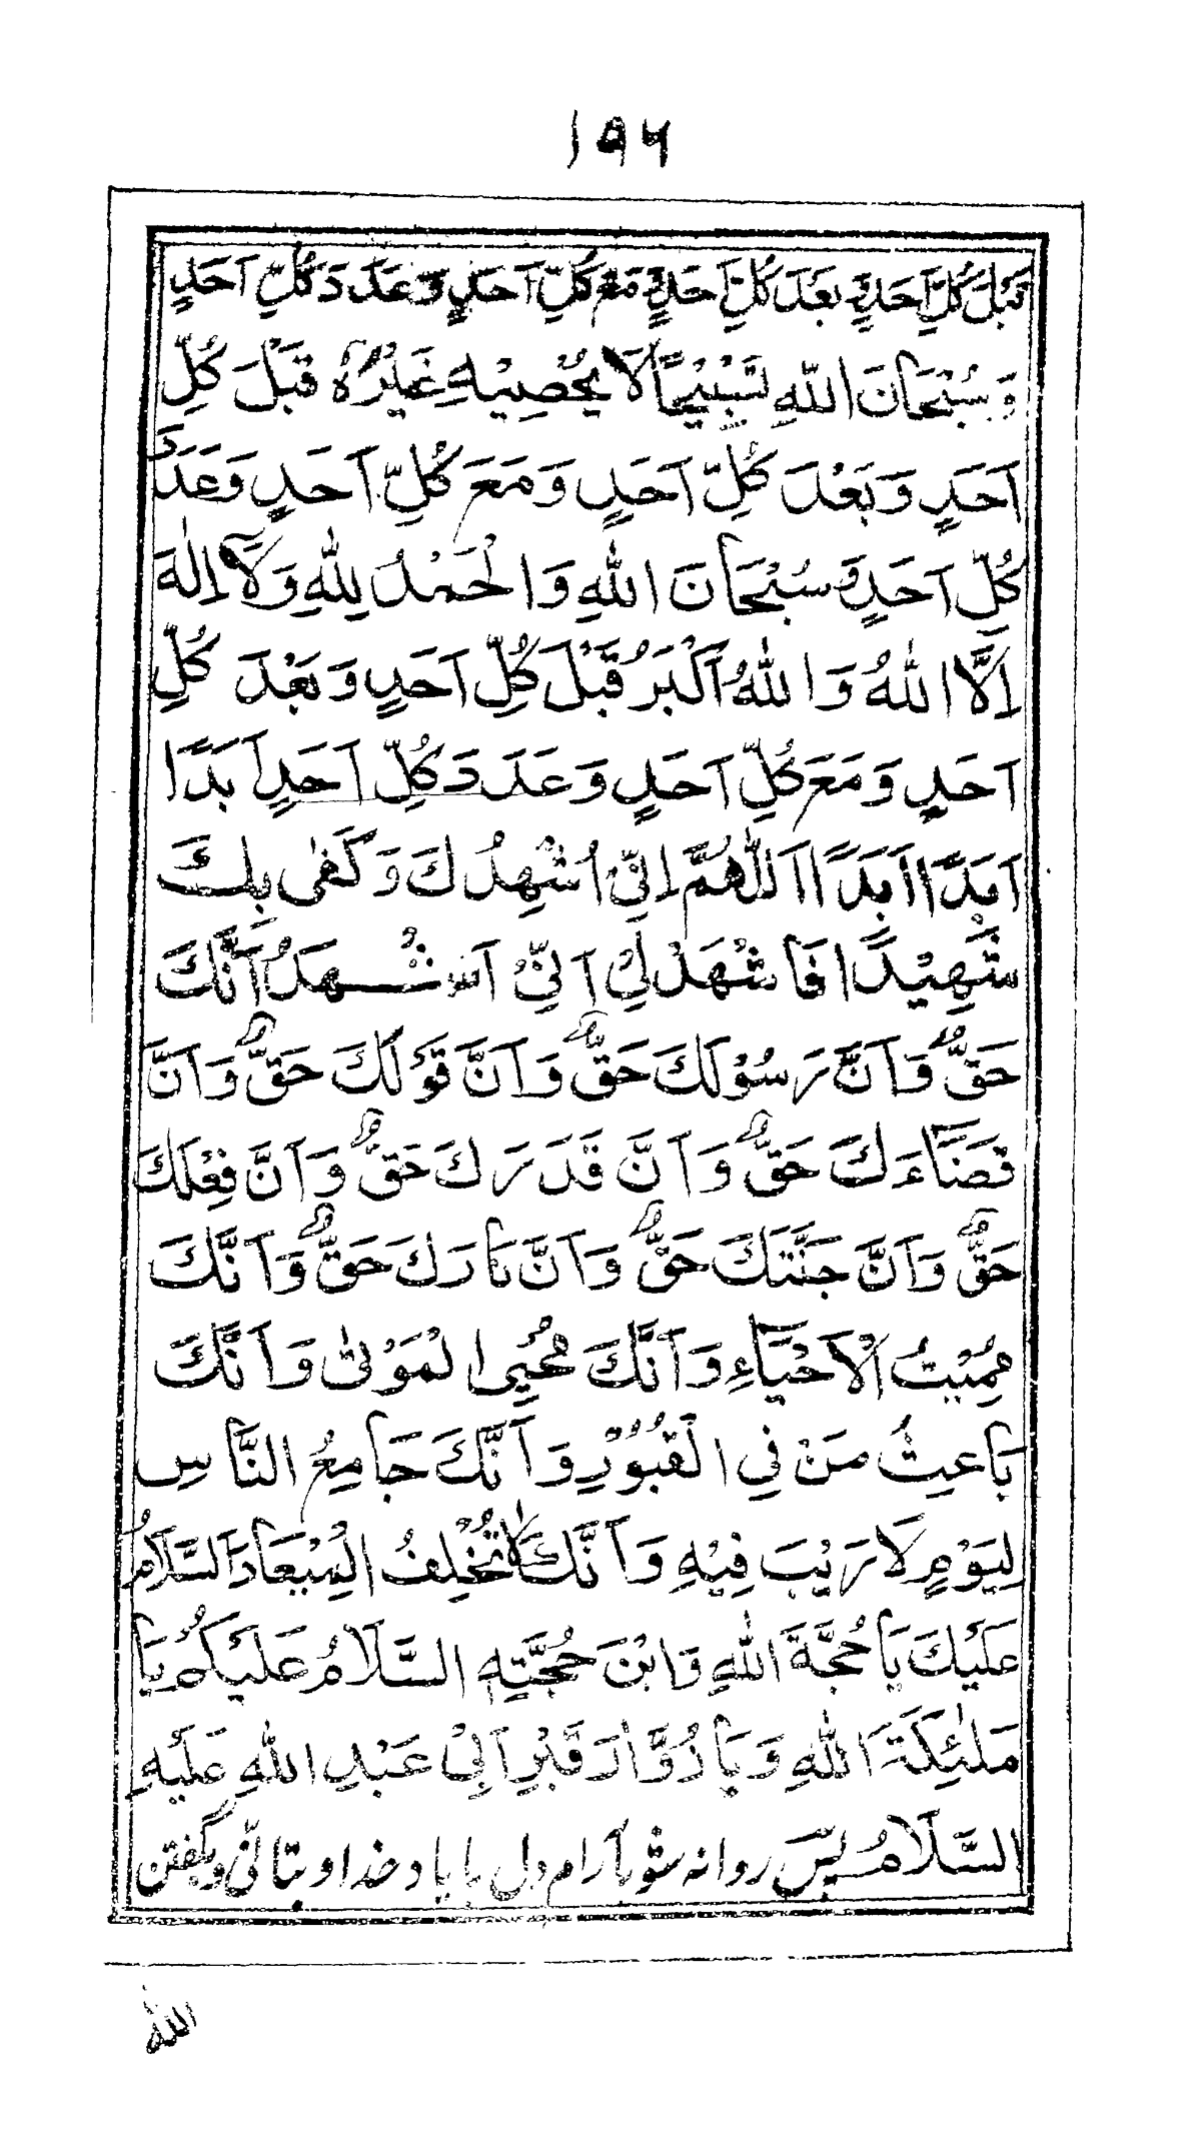 ۱۹۶
قَبْلَ كُلِّ اَحَدٍ وَّ بَعْدَ كُلِّ اَحَدٍ وَّ مَعَ كُلِّ اَحَدٍ وَّ عَدَدَ كُلِّ اَحَدٍ
وَ سُبْحَانَ اللّٰهِ تَسْبِيْحًا لَا يُحْصِيْهِ غَيْرُهٗ قَبْلَ كُلِّ
اَحَدٍ وَ بَعْدَ كُلِّ اَحَدٍ وَ مَعَ كُلِّ اَحَدٍ وَ عَدَدَ
كُلِّ اَحَدٍ وَّ سُبْحَانَ اللّٰهِ وَ الْحَمْدُ لِلّٰهِ وَ لَا اِلٰهَ
اِلَّا اللّٰهُ وَ اللّٰهُ اَكْبَرُ قَبْلَ كُلِّ اَحَدٍ وَ بَعْدَ كُلِّ
اَحَدٍ وَ مَعَ كُلِّ اَحَدٍ وَ عَدَدَ كُلِّ اَحَدٍ اَبَدًا
اَبَدًا اَبَدًا اَللّٰهُمَّ اِنِّيْ اُشْهِدُكَ وَ كَفٰى بِكَ
شَهِيْدًا فَاشْهَدْ لِيْ اَنِّيْ اَشْهَدُ اَنَّكَ
حَقٌّ وَّ اَنَّ رَسُوْلَكَ حَقٌّ وَ اَنَّ قَوْلَكَ حَقٌّ وَ اَنَّ
قَضَاءَكَ حَقٌّ وَ اَنَّ قَدَرَكَ حَقٌّ وَ اَنَّ فِعْلَكَ
حَقٌّ وَ اَنَّ جَنَّتَكَ حَقٌّ وَ اَنَّ نَارَكَ حَقٌّ وَ اَنَّكَ
مُمِيْتُ الْاَحْيَاءِ وَ اَنَّكَ مُحْيِي الْمَوْتٰى وَ اَنَّكَ
بَاعِثُ مَنْ فِي الْقُبُوْرِ وَ اَنَّكَ جَامِعُ النَّاسِ
لِيَوْمٍ لَا رَيْبَ فِيْهِ وَ اَنَّكَ لَا تُخْلِفُ الْمِيْعَادَ اَلسَّلَامُ
عَلَيْكَ يَا حُجَّةَ اللّٰهِ وَ ابْنَ حُجَّتِهٖ السَّلَامُ عَلَيْكُمْ يَا
مَلٰئِكَةَ اللّٰهِ وَ يَا زُوَّارَ قَبْرِ اَبِيْ عَبْدِ اللّٰهِ عَلَيْهِ
السَّلَامُ پس روانه شو بآرام دل با یاد خدا و بتأنّی و بگفتن
اللّٰه